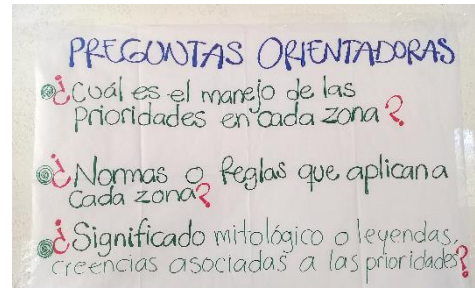 PREGUNTAS ORIENTADORAS
¿Cuál es el manejo de las
prioridades en cada zona?
¿Normas o Reglas que aplican a
cada zona?
¿Significado mitológico o leyendas,
creencias asociadas a las prioridades?